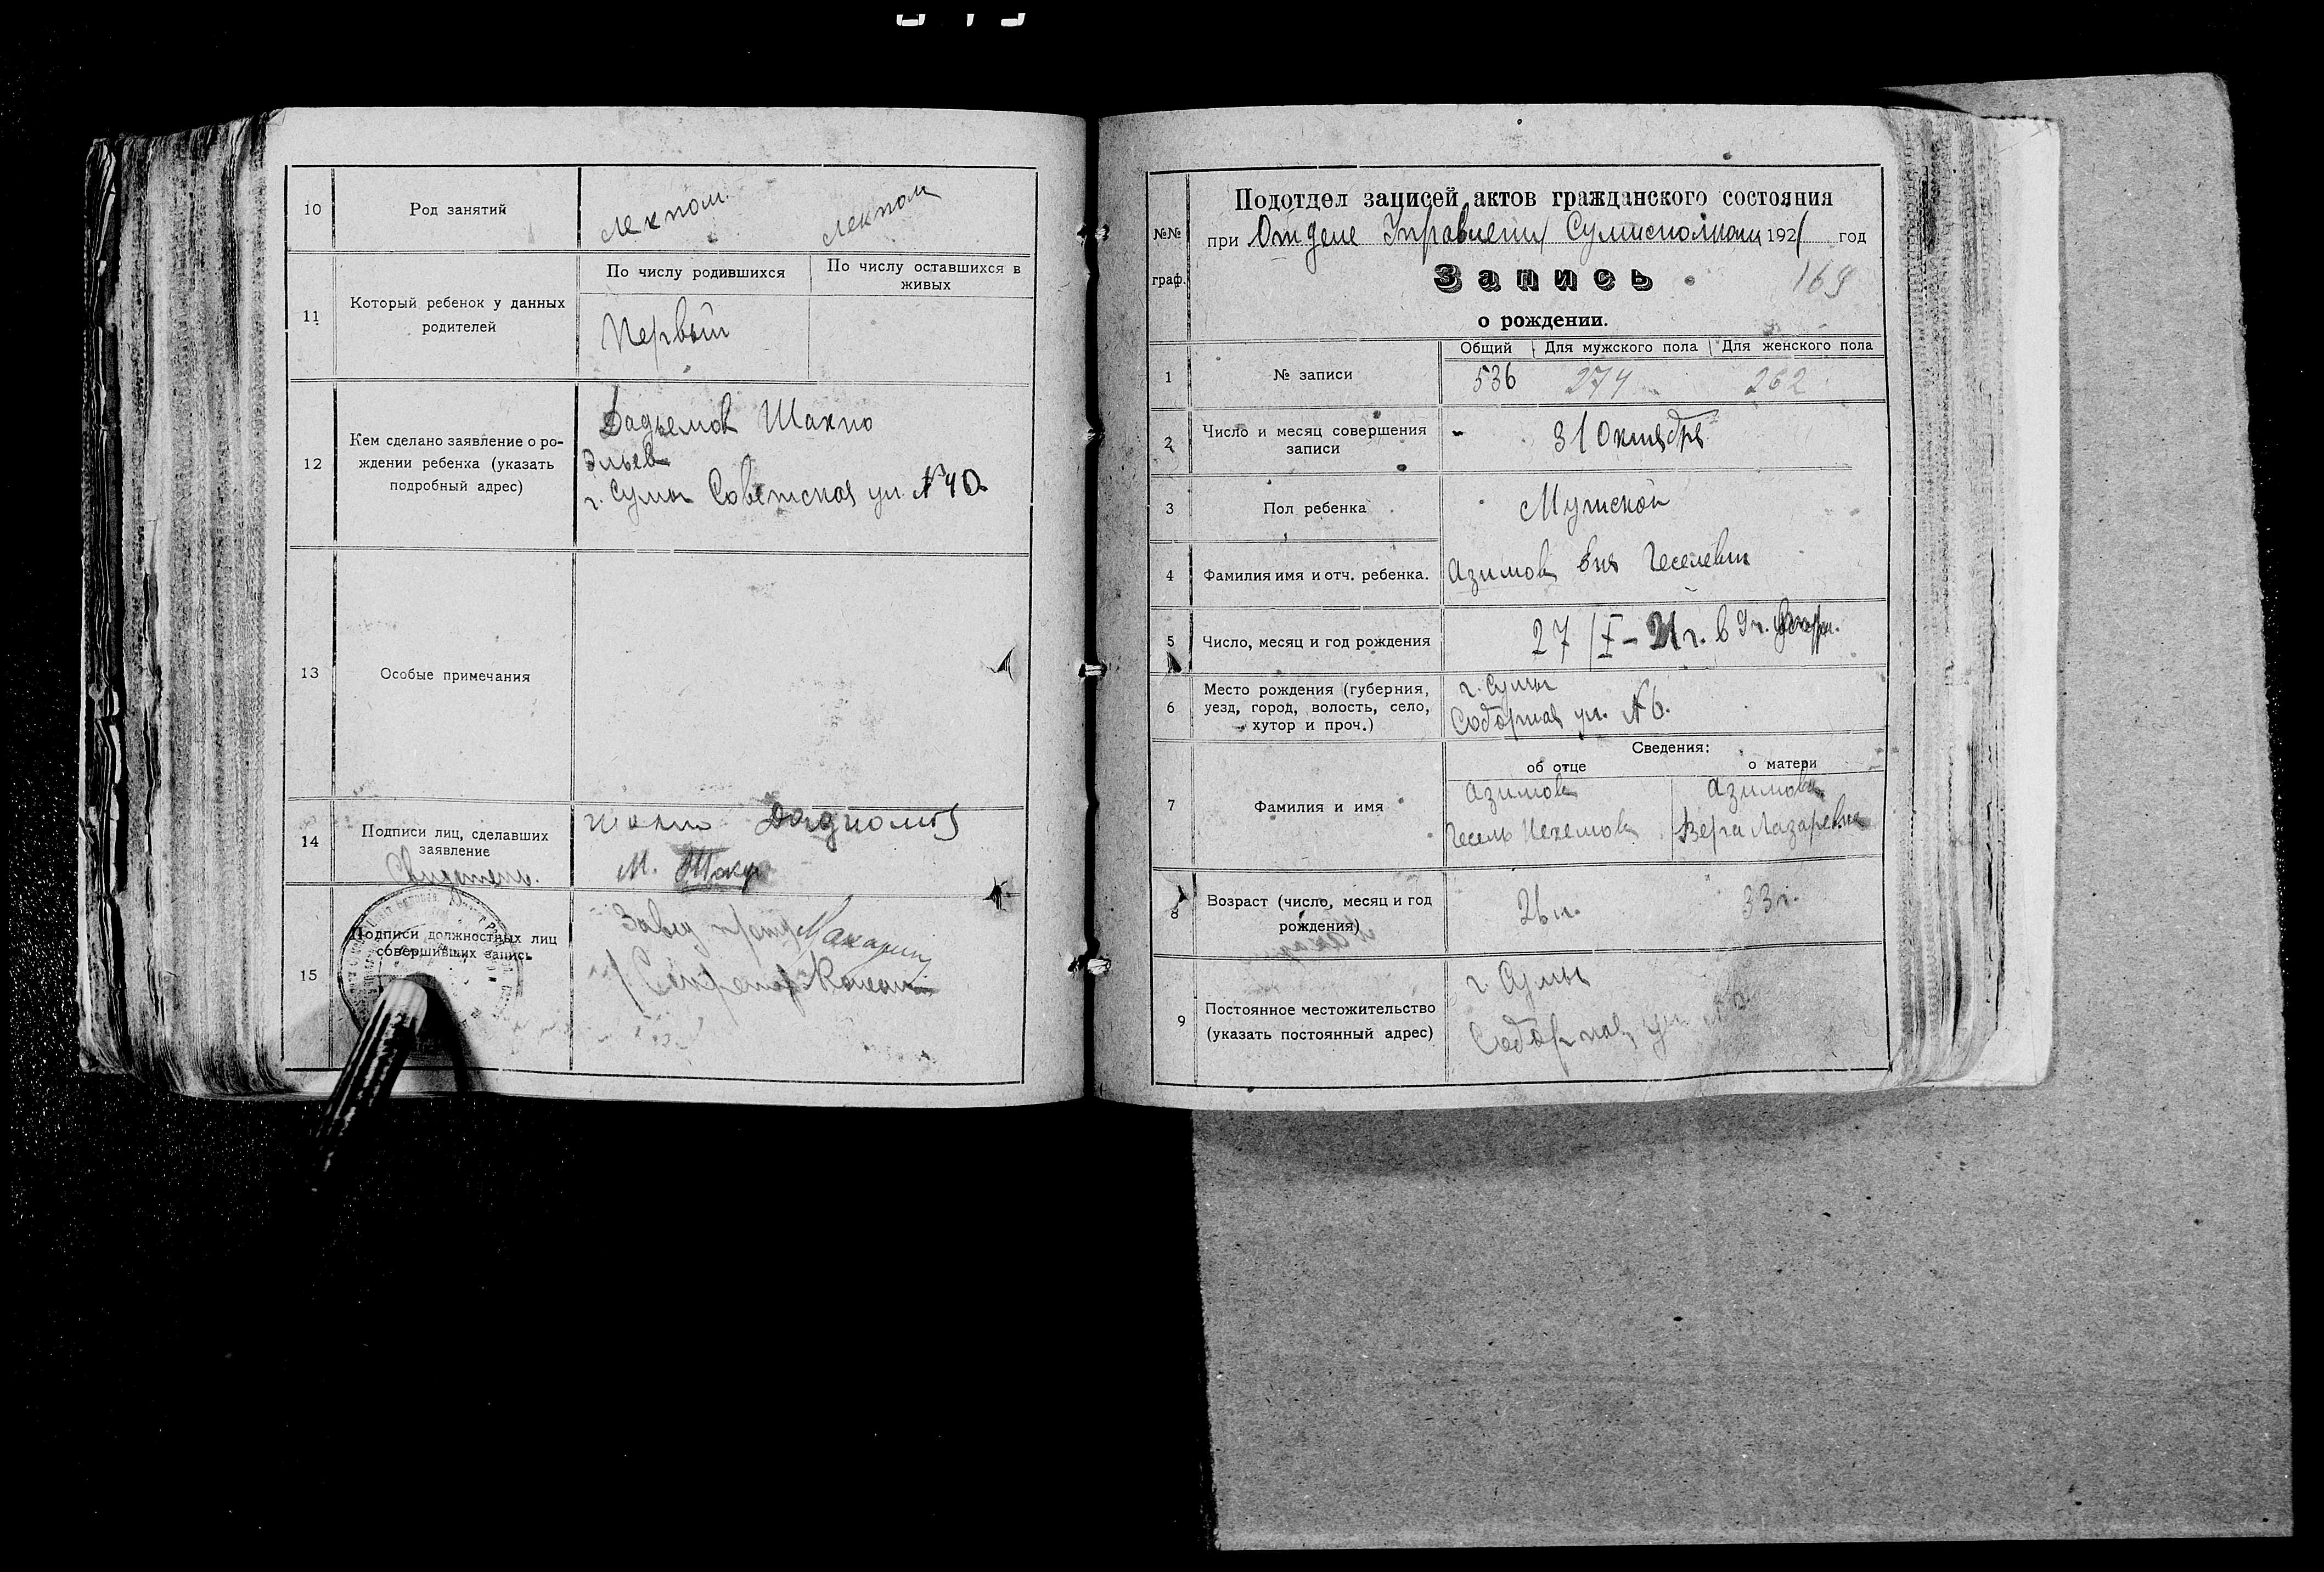 10
Род занятий
лекпом. лекпом
11
Который ребенок у данных
родителей
По числу родившихся
По числу оставшихся в
живых
Первый
12
Кем сделано заявление о ро-
ждении ребенка (указать
подробный адрес)
Шахно
г. Сумы Советская ул. №40
13
Особые примечания
14
Подписи лиц, сделавших
заявление
М.
15
Подписи должностных лиц
совершивших запись
Завед
Секретарь
Подотдел записей актов гражданского состояния
№№
граф.
при Отделе Управления Сумисполкома 1921 год
Запись
169
о рождении.
Общий Для мужского пола Для женского пола
1
№ записи
536 274 262
2
Число и месяц совершения
записи
31 Октября
3
Пол ребенка
Мужской
4
Фамилия имя и отч. ребенка.
Азимов
5
Число, месяц и год рождения
27/X–21г. в 9ч.
6
Место рождения (губерния,
уезд, город, волость, село,
хутор и проч.)
г. Сумы
Соборная ул. №6.
Сведения:
об отце о матери
7
Фамилия и имя
Азимов Азимова
Вера Лазаревна
8
Возраст (число, месяц и год
рождения)
26 л. 33 г.
9
Постоянное местожительство
(указать постоянный адрес)
г. Сумы
Соборная ул.